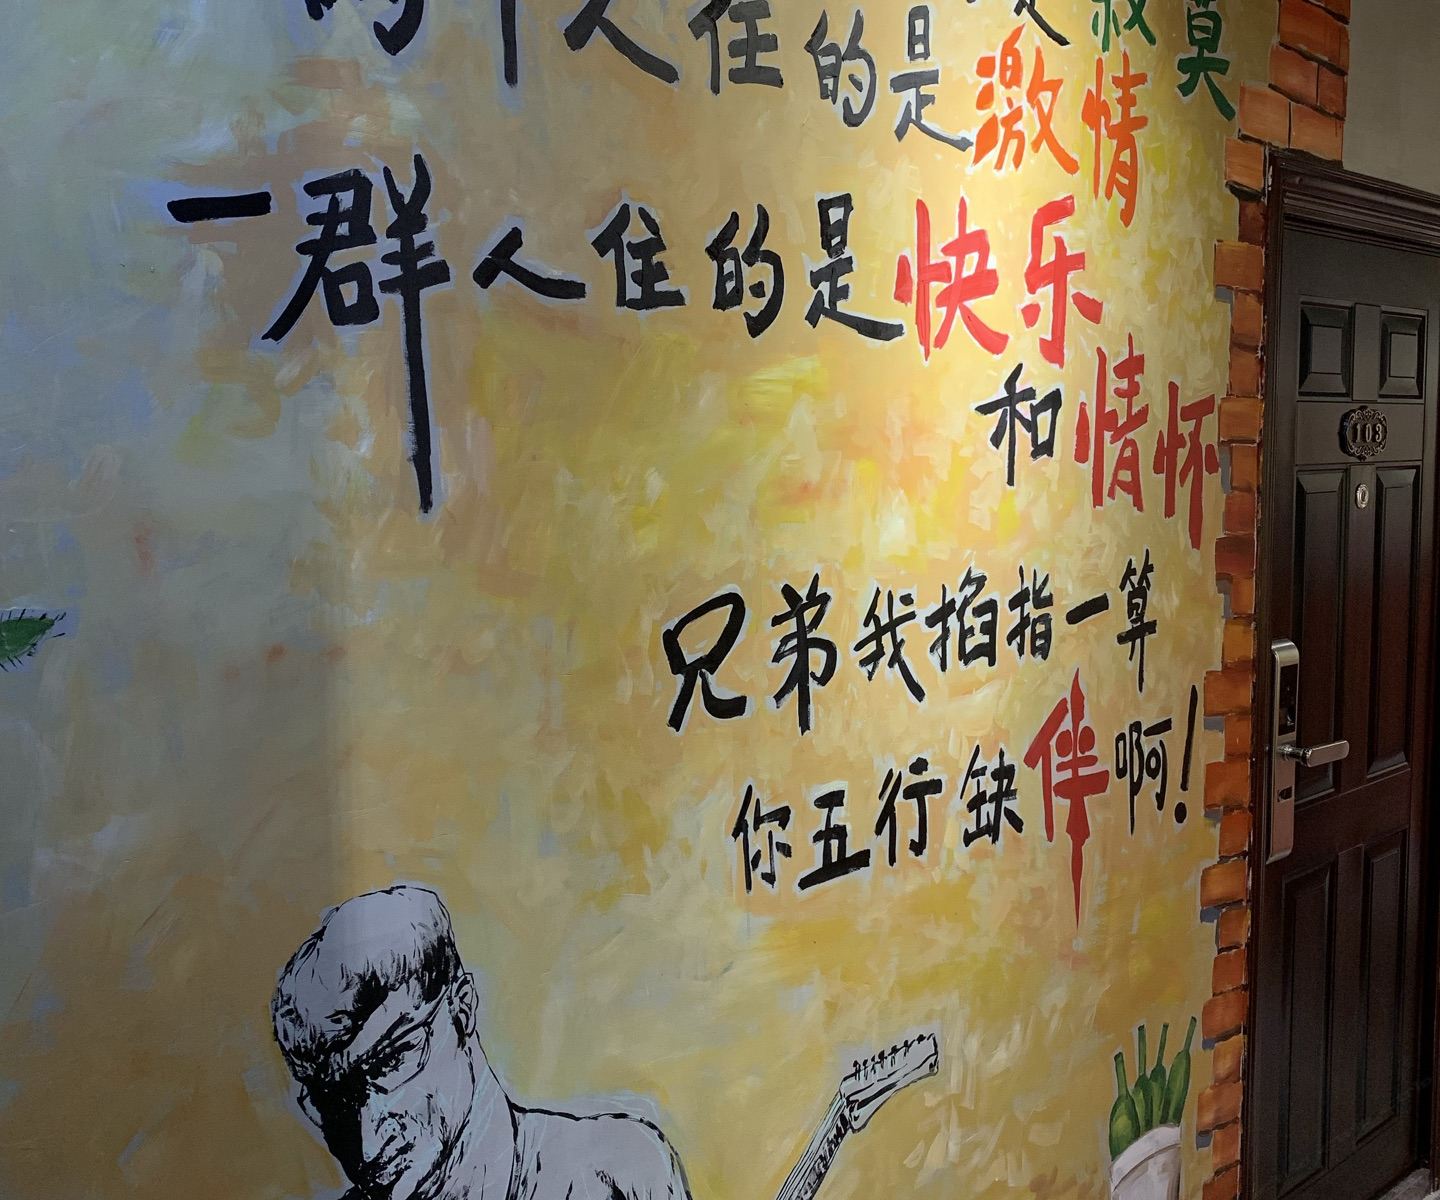 个人住的是激情
一群人住的是快乐
和情怀
兄弟我掐指一算
你五行缺伴啊!
103